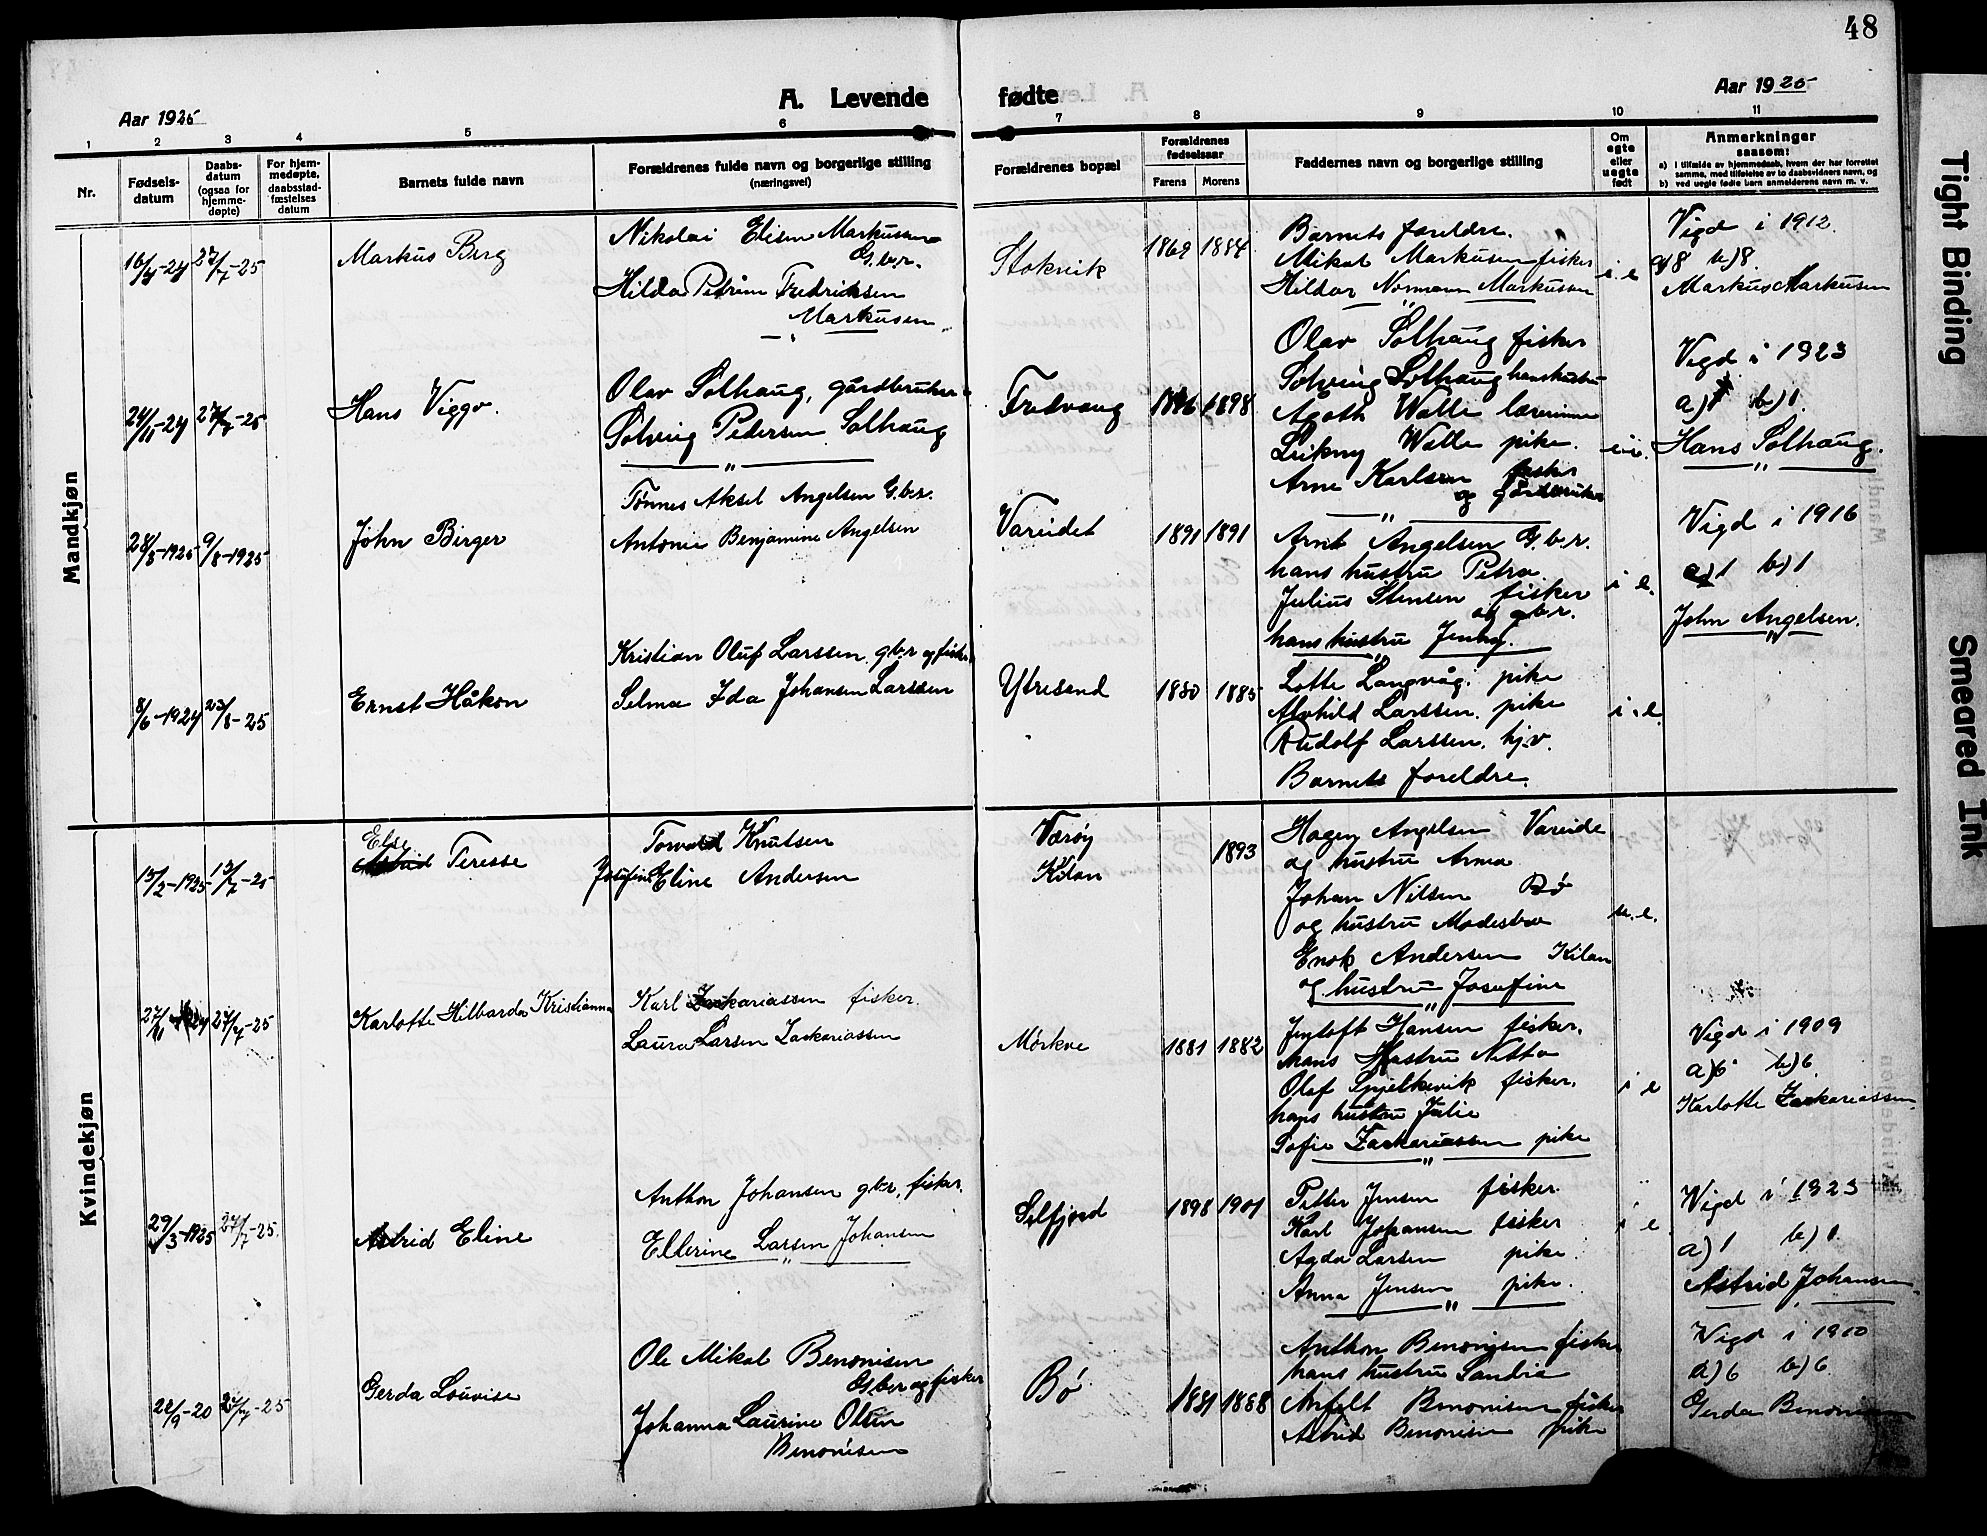 48
A. Levende fødte
Aar 1925
Aar 1925
1 2 3 4 5 6 7 8 9 10 11
Nr.
Fødsels-
datum
Daabs-
datum
(ogsaa for
hjemme-
døpte)
For hjem-
medøpte,
daabsstad-
fæstelses
datum
Barnets fulde navn
Forældrenes fulde navn og borgerlige stilling
(næringsvei)
Forældrenes bopæl
Forældrenes
fødselsaar
Farens Morens
Faddernes navn og borgerlige stilling
Om
egte
eller
uegte
født
Anmerkninger
saasom:
a) i tilfælde av hjemmedaab, hvem der har forrettet
samme, med tilføielse av to daabsvidners navn, og
b) ved uegte fødte barn anmelderens navn m. v.
Mandkjøn
16/4-24 27/7-25
Markus Berg
Nikolai Elisen Markussen
G.b.r.
Hilda Petrine Fredriksen
Markusen
Stokvik
1869 1884
Barnets foreldre.
Mikal Markusen fisker
Hildor Normann Markussen
i. e
Vigd i 1912.
a) 8 b) 8.
Markus Markusen
24/11-24 27/7-25
Hans Viggo.
Olav Solhaug, gårdbruker
Solveig Pedersen Solhaug
Fredvang
1896 1898
Olav Solhaug fisker
Solveig Solhaug hans hustru
Agoth Walle lærerinne
Walle pike.
Arne Karlsen fisker
og gårdbruker
i.e.
Vigd i 1923
a) 1 b) 1
Hans Solhaug.
28/5-1925 9/8-1925
John Birger
Tønnes Aksel Angelsen G.b.r.
Antonie Benjamine Angelsen
Vareidet
1891 1891
Arnt Angelsen G.b.r.
hans hustru Petra
Julius Stensen fisker
og gb.r.
hans hustru Jenny.
i e.
Vigd i 1916
a) 1 b) 1
John Angelsen.
8/6-1924 23/8-25
Ernst Håkon
Kristian Oluf Larssen. gb.r og fisker
Selma Ida Johansen Larssen
Ytresand
1880 1885
Lotte Langvåg. pike
Alvhild Larssen. pike
Rudolf Larssen. hj.v.
Barnets foreldre.
i. e.
Kvindekjøn
15/2-1925 13/7-25
Else
Astrid Teresse
Torvald Knutsen
Josefine Eline Andersen
Værøy
Kilan
1893
Hagen Angelsen Vareide
og hustru Arna
Johan Nilsen Bø
og hustru Modesta
Enok Andersen Kilan
og hustru Josefine
u. e.
27/11-1924 24/7-25
Karlotte Hilbarda Kristianna
Karl Zackariassen fisker.
Laura Larsen Zackariassen
Mørkve
1881 1882
Jentoft Hansen fisker.
hans Hustru Netta
Olaf Snjelkevik fisker.
hans hustru Julie
Sofie Zackariassen pike
i e
Vigd i 1909
a) 6 b) 6.
Karlotte Zackariassen
29/3-1925 27/7-25.
Astrid Eline
Anthon Johansen gb.r, fisker.
Ellerine Larsen Johansen
Selfjord
1898 1901
Petter Jensen fisker.
Karl Johansen fisker
Agda Larsen pike.
Anna Jensen pike.
i e
Vigd i 1923
a) 1 b) 1.
Astrid Johansen
22/9-20 27/7-25
Gerda Louvise
Ole Mikal Benonisen
G.b.r og fisker
Johanna Laurine Olsen
Benonisen
Bø
1881 1888
Anthon Benonisen fisker
hans hustru Sandra
Arfelt Benonisen fisker
Astrid Benonisen pike
Vigd i 1910
a) 6 b) 6
Gerda Benonisen
Tight Binding
Smeared Ink